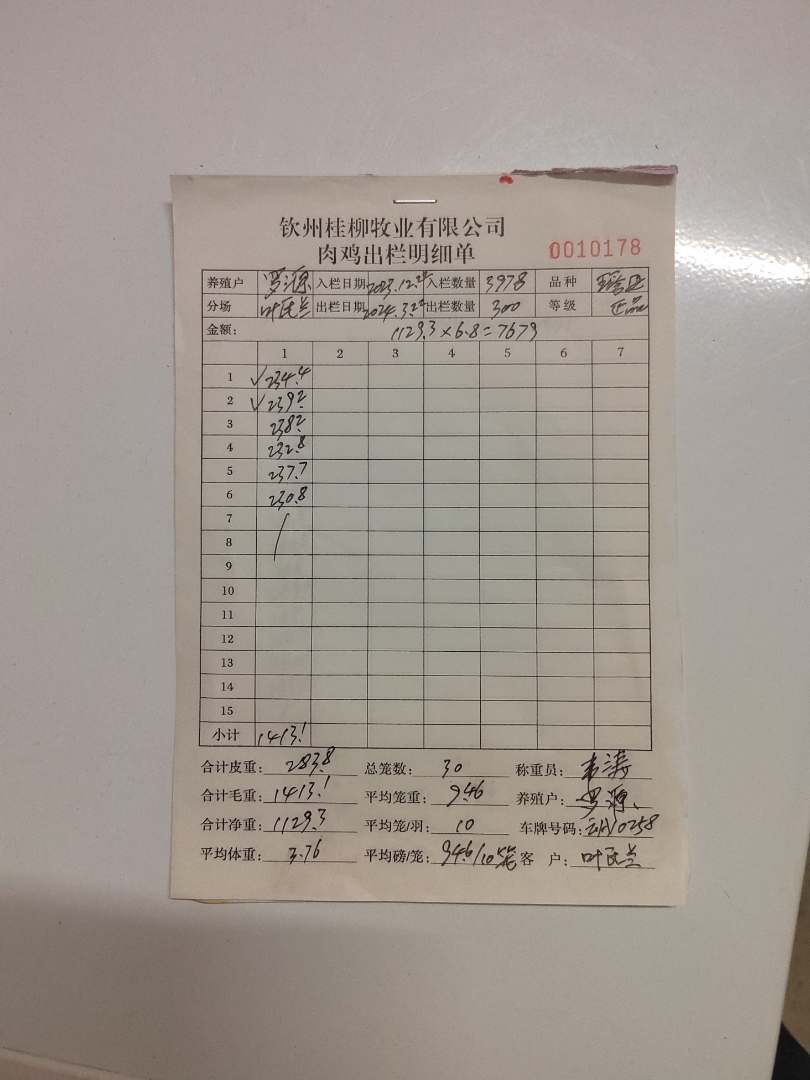 钦州桂柳牧业有限公司
肉鸡出栏明细单 0010178
养殖户 罗源 入栏日期 2023.12. 入栏数量 3978 品种
分场 叶氏兰 出栏日期 2024.3. 出栏数量 300 等级 正品
金额: 1129.3×6.8=7679
1 2 3 4 5 6 7
1 ✓234.4
2 ✓239.2
3 238.2
4 232.8
5 237.7
6 230.8
7
8
9
10
11
12
13
14
15
小计 1413.1
合计皮重: 283.8 总笼数: 30 称重员: 韦涛
合计毛重: 1413.1 平均笼重: 9.46 养殖户: 罗源
合计净重: 1129.3 平均笼/羽: 10 车牌号码: 0258
平均体重: 3.76 平均磅/笼: 94.6/10笼 客 户: 叶氏兰